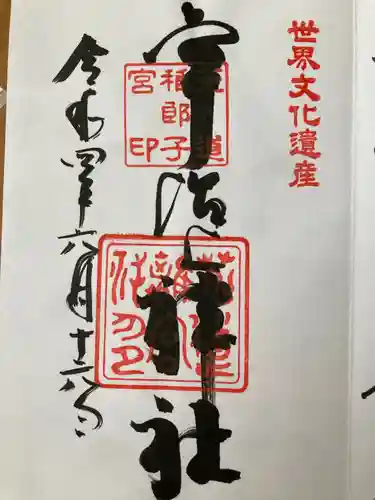 世界文化遺産
宇治神社
菟道稚郎子宮印
令和四年六月十六日